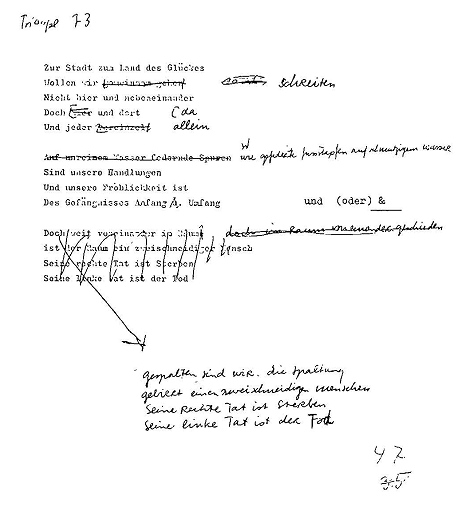 Triumpf 73
Zur Stadt zum Land des Glückes
Wollen wir gemeinsam gehen schreiten
Nicht hier und nebeneinander
Doch hier und dort (da
Und jeder vereinzelt allein
Auf unreinem Wasser federnde Spuren wie auf abnutzigem wasser
Sind unsere Handlungen
Und unsere Fröhlichkeit ist
Des Gefängnisses Anfang &. Umfang und (oder) &
Doch weit voneinander im Raum doch im Raum voneinander geschieden
ist der Raum ein zweischneidiger Mensch
Seine rechte Tat ist Sterben
Seine linke Tat ist der Tod
gespalten sind wir. die spaltung
gebiert einen zweischneidigen menschen
seine Rechte Tat ist sterben
seine linke Tat ist der Tod
47
35